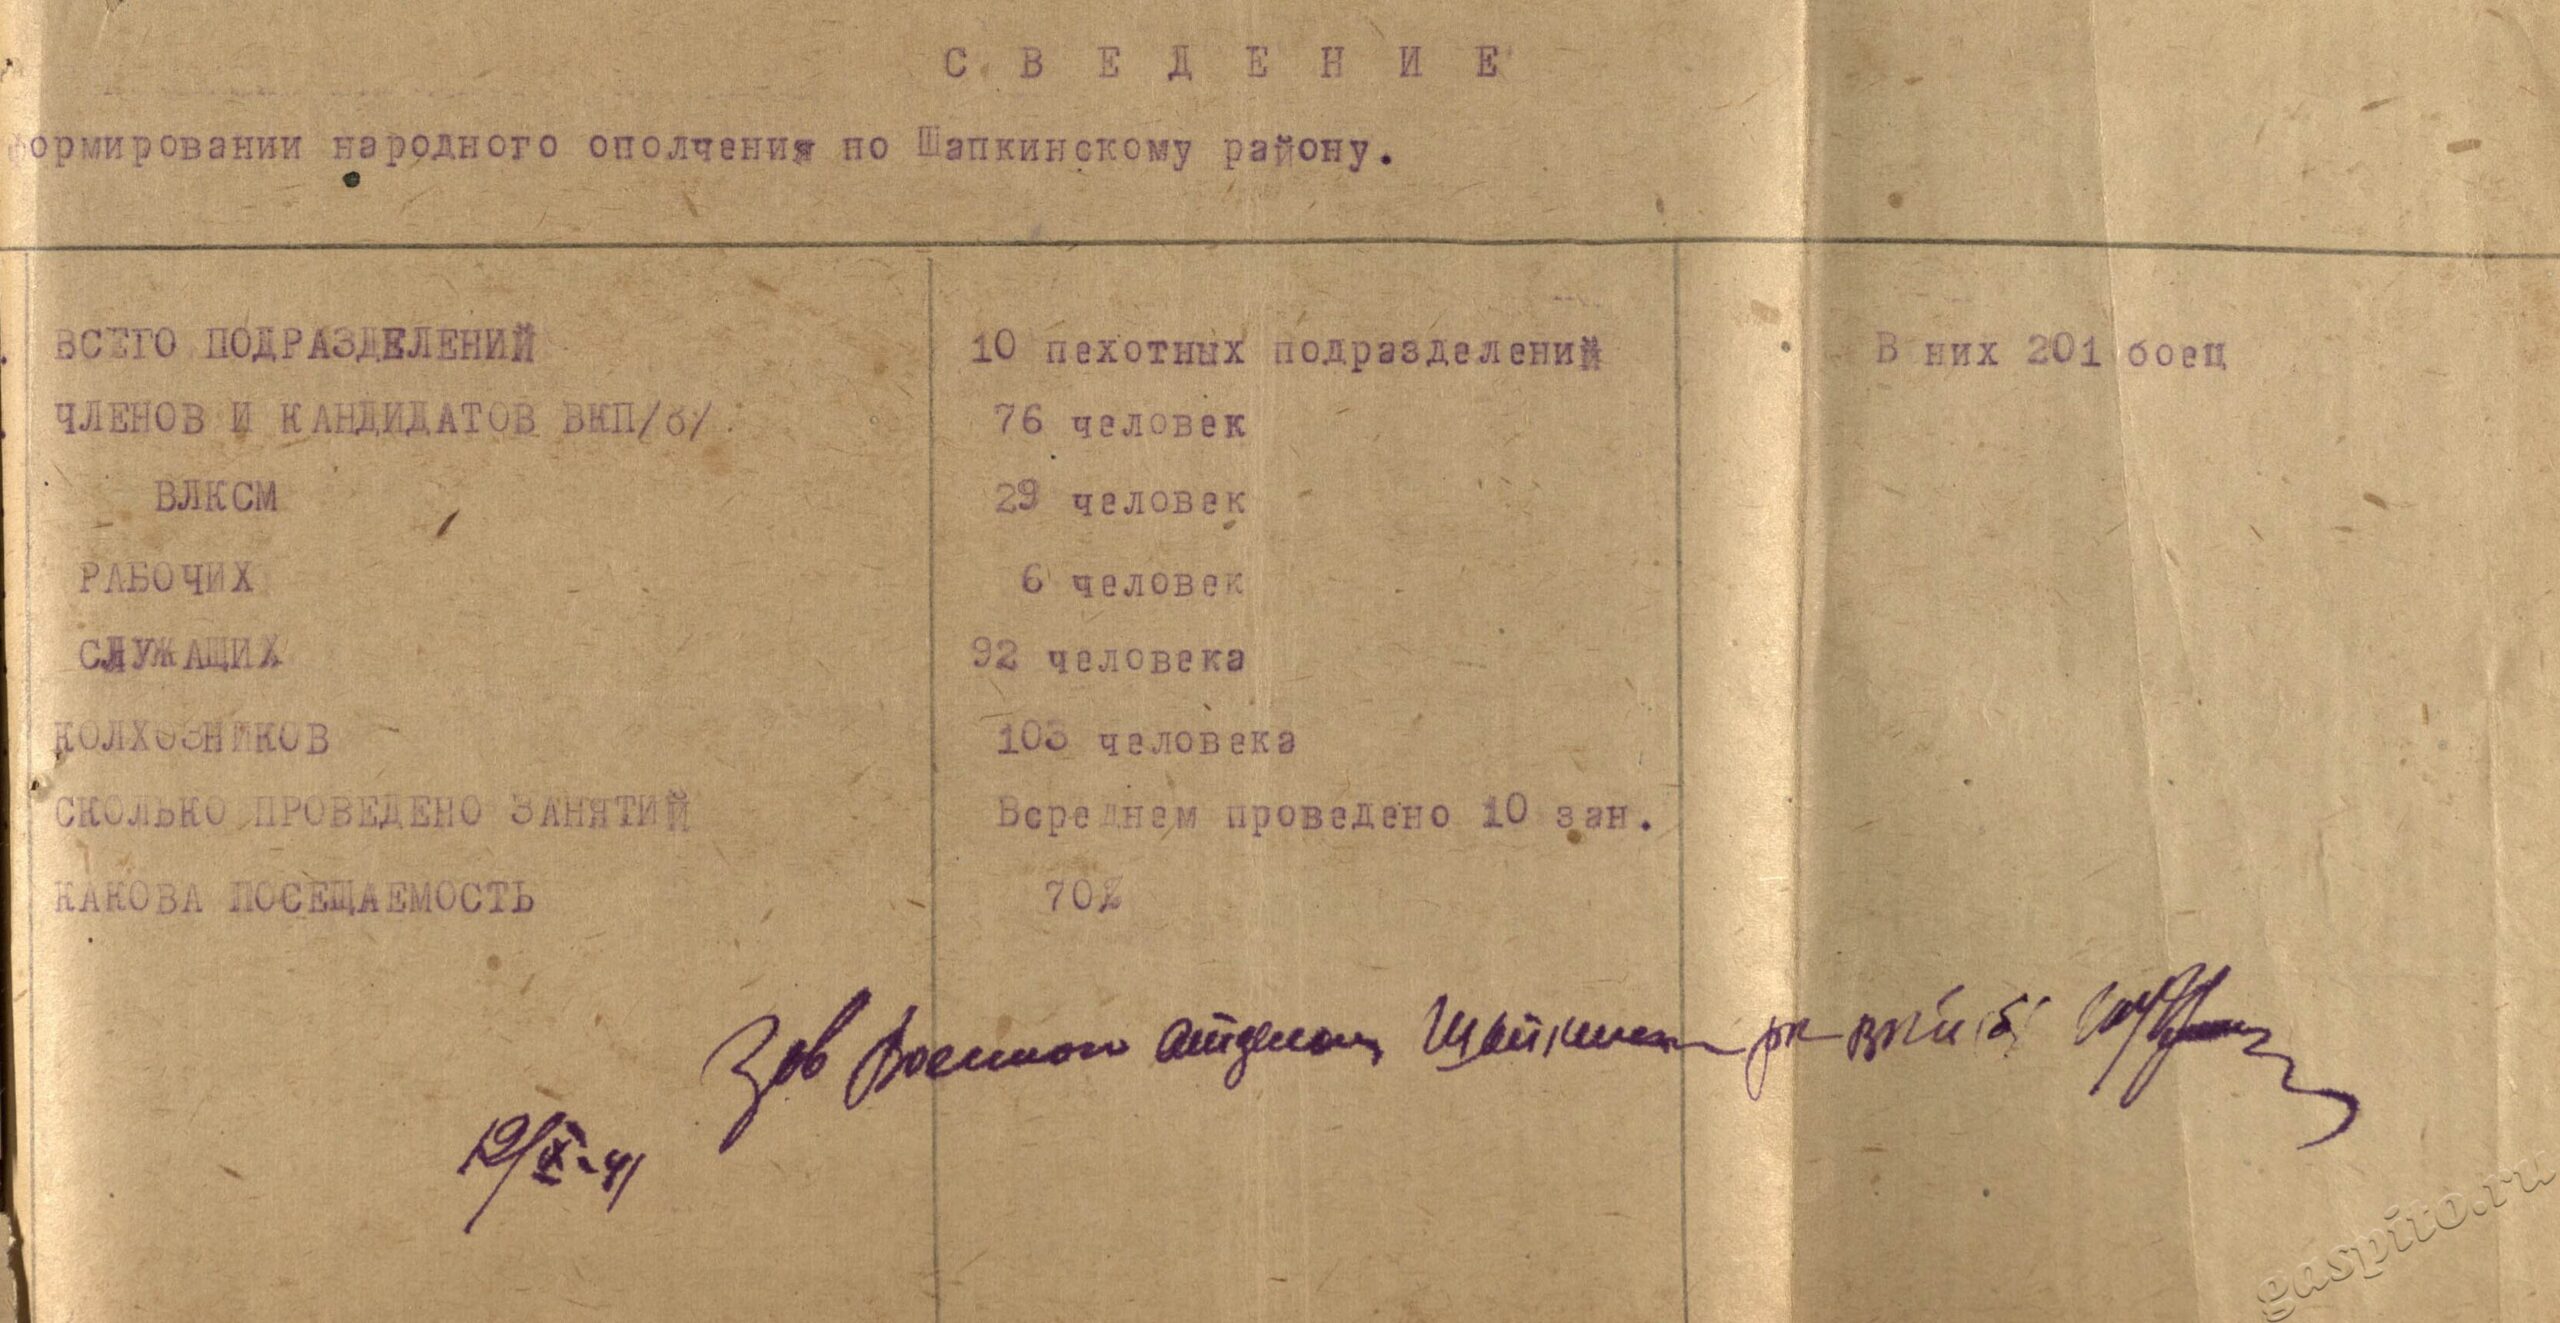 СВЕДЕНИЕ
формировании народного ополчения по Шапкинскому району.
ВСЕГО ПОДРАЗДЕЛЕНИЙ 10 пехотных подразделений В них 201 боец
ЧЛЕНОВ И КАНДИДАТОВ ВКП/б/. 76 человек
ВЛКСМ 29 человек
РАБОЧИХ 6 человек
СЛУЖАЩИХ 92 человека
КОЛХОЗНИКОВ 103 человека
СКОЛЬКО ПРОВЕДЕНО ЗАНЯТИЙ Всреднем проведено 10 зан.
КАКОВА ПОСЕЩАЕМОСТЬ 70%
Зав Военного отделом рк вкп(б)
gaspito.ru